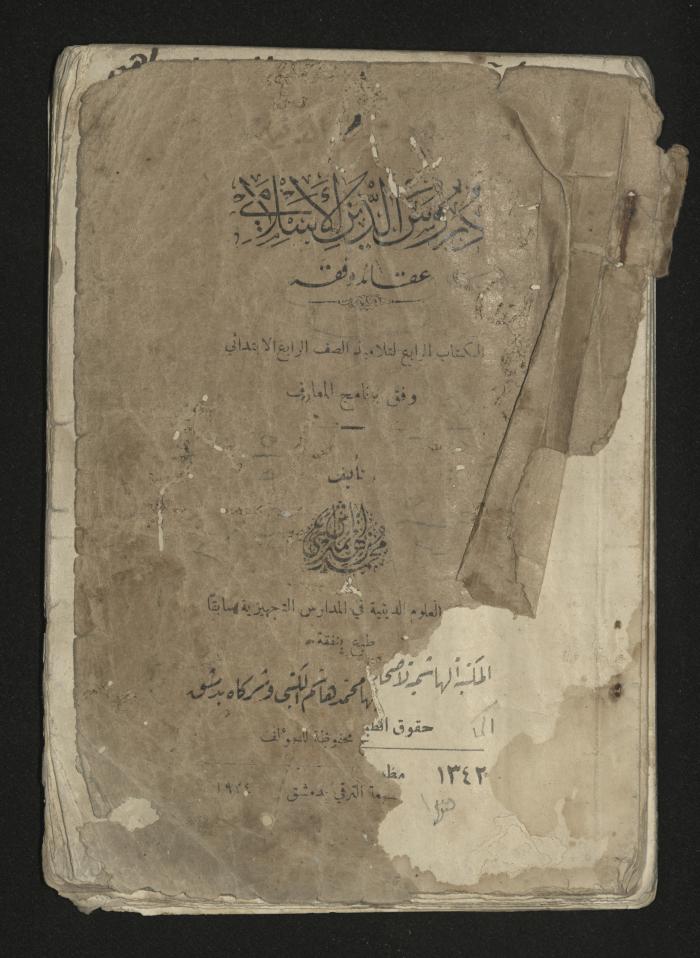 دروس الدين الإسلامي
عقائد وفقه
الكتاب الرابع لتلاميذ الصف الرابع الابتدائي
وفق برنامج المعارف
تأليف
العلوم الدينية في المدارس التجهيزية سابقا
طبع بنفقة
المكتبة الهاشمية لاصحابها محمد هاشم الكتبي وشركاه بدمشق
حقوق الطبع محفوظة للمؤلف
١٣٤٢
مطبعة الترقي بدمشق